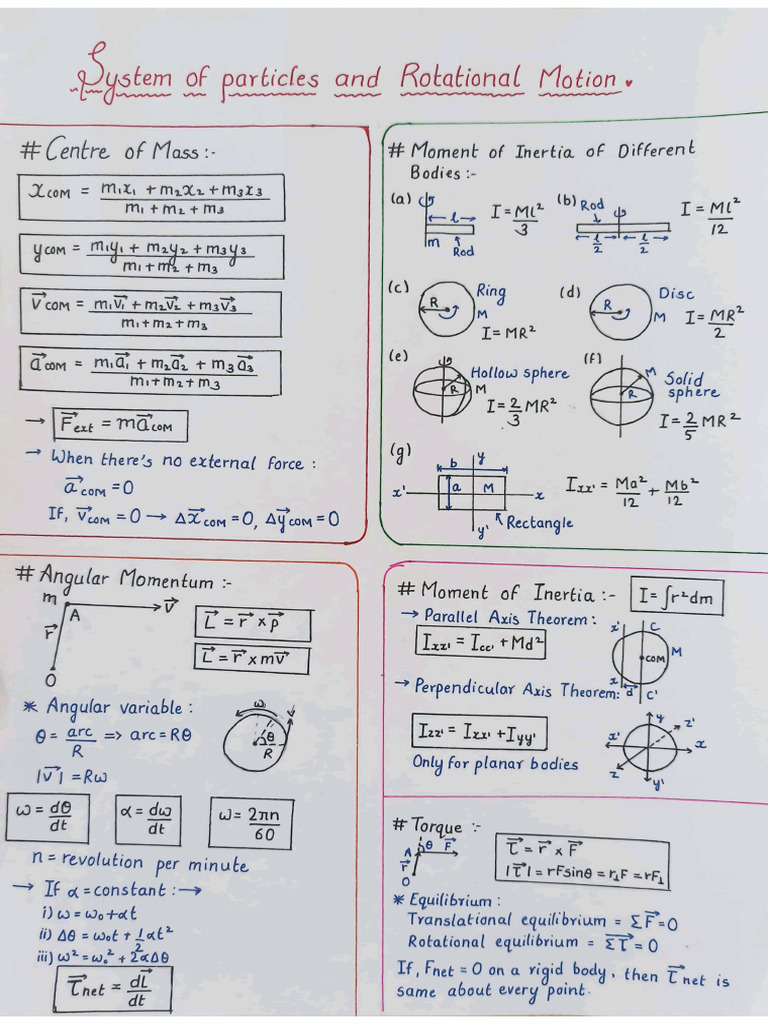 System of particles and Rotational Motion.
# Centre of Mass :-
x⃗COM = m₁x₁ + m₂x₂ + m₃x₃ / m₁ + m₂ + m₃
yCOM = m₁y₁ + m₂y₂ + m₃y₃ / m₁ + m₂ + m₃
v⃗COM = m₁v⃗₁ + m₂v⃗₂ + m₃v⃗₃ / m₁ + m₂ + m₃
a⃗COM = m₁a⃗₁ + m₂a⃗₂ + m₃a⃗₃ / m₁ + m₂ + m₃
→ F⃗ext = ma⃗COM
→ When there's no external force :
a⃗COM = 0
If, v⃗COM = 0 → Δx⃗COM = 0, Δy⃗COM = 0
# Moment of Inertia of Different
Bodies :-
(a) l I = Ml²/3
m Rod
(b) Rod I = Ml²/12
l/2 l/2
(c) Ring
R M
I = MR²
(d) Disc
R M I = MR²/2
(e) Hollow sphere
R M
I = 2/3 MR²
(f) M Solid
sphere
R
I = 2/5 MR²
(g) b y
x' a M x Ixx' = Ma²/12 + Mb²/12
y' Rectangle
# Angular Momentum :-
m A v⃗
r⃗
O
L⃗ = r⃗ × p⃗
L⃗ = r⃗ × mv⃗
* Angular variable :
ω
θ
R
θ = arc/R => arc = Rθ
|v⃗| = Rω
ω = dθ/dt α = dω/dt ω = 2πn/60
n = revolution per minute
→ If α = constant : →
i) ω = ω₀ + αt
ii) Δθ = ω₀t + 1/2 αt²
iii) ω² = ω₀² + 2αΔθ
τ⃗net = dL⃗/dt
# Moment of Inertia :- I = ∫r²dm
→ Parallel Axis Theorem :
Ixx' = Icc' + Md²
x' C
COM M
x d C'
→ Perpendicular Axis Theorem :
Izz' = Ixx' + Iyy'
y z'
x' x
z y'
Only for planar bodies
# Torque :-
A θ F⃗
r⃗
O
τ⃗ = r⃗ × F⃗
|τ⃗| = rFsinθ = r⊥F = rF⊥
* Equilibrium :
Translational equilibrium = ΣF⃗ = 0
Rotational equilibrium = Στ⃗ = 0
If, Fnet = 0 on a rigid body, then τ⃗net is
same about every point.